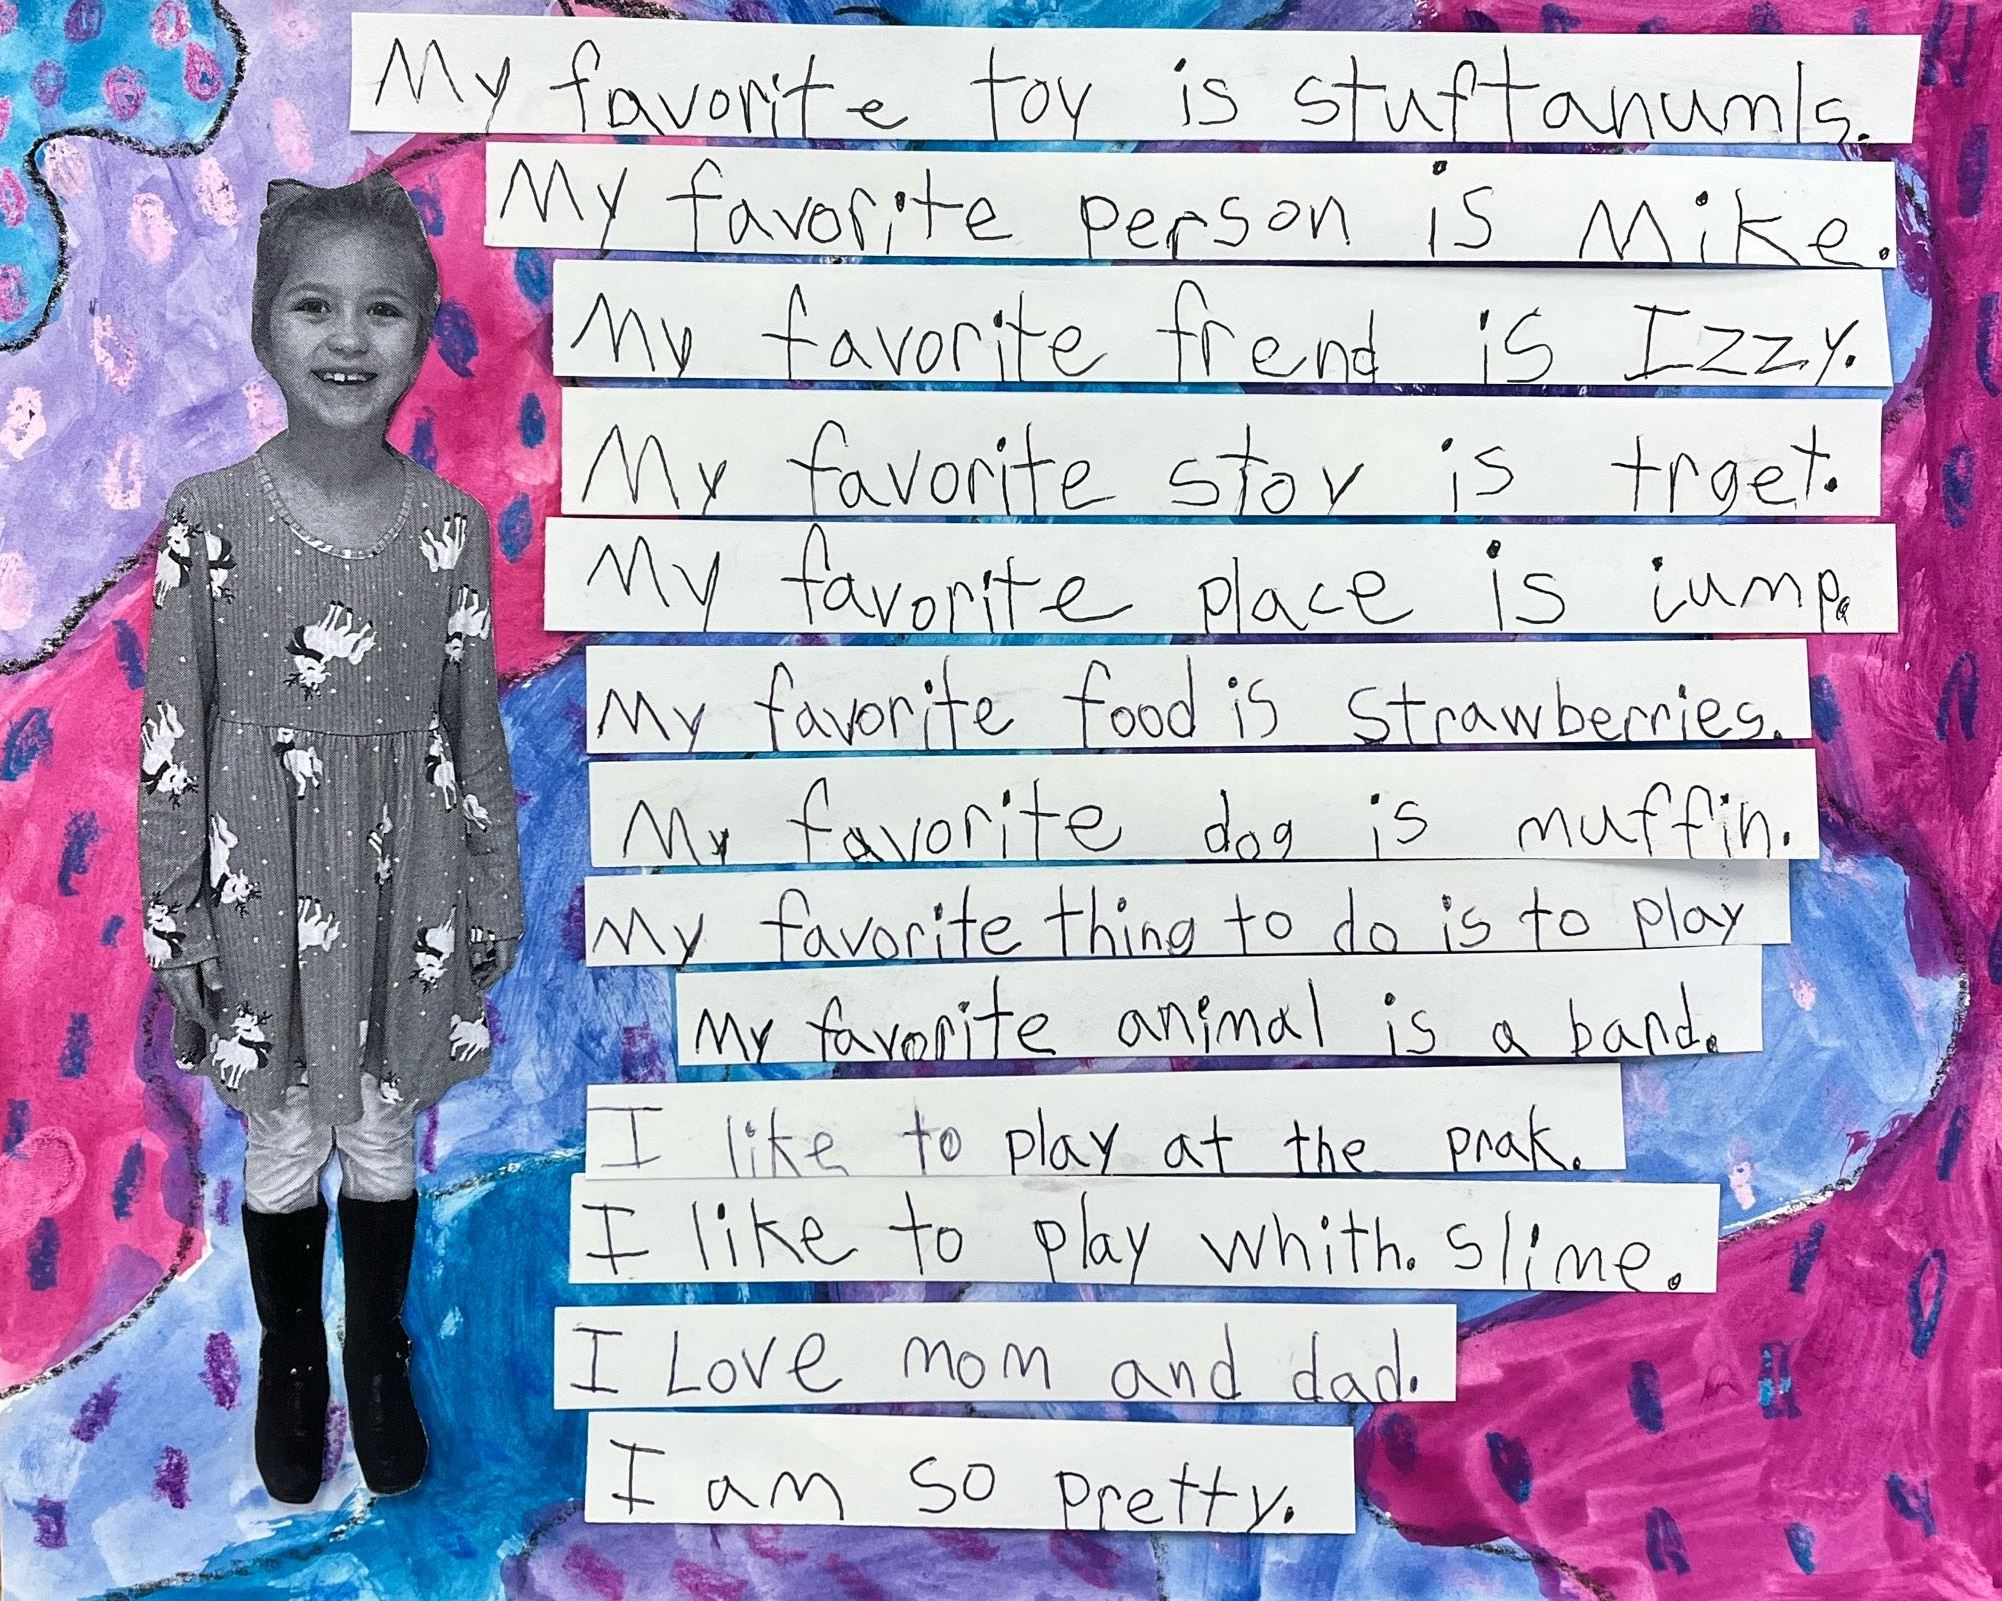 My favorite toy is stuftanumls.
My favorite person is Mike.
My favorite frend is Izzy.
My favorite stov is trget.
My favorite place is iump.
My favorite food is strawberries.
My favorite dog is muffin.
My favorite thing to do is to play
My favorite animal is a band.
I like to play at the prak.
I like to play whith. slime.
I Love mom and dad.
I am so pretty.